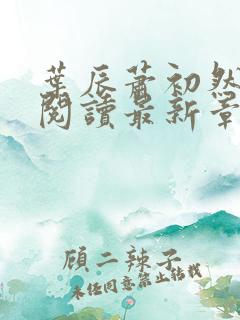 葉辰蕭初然
閱讀最新章
顧二辣子
未經同意禁止轉載